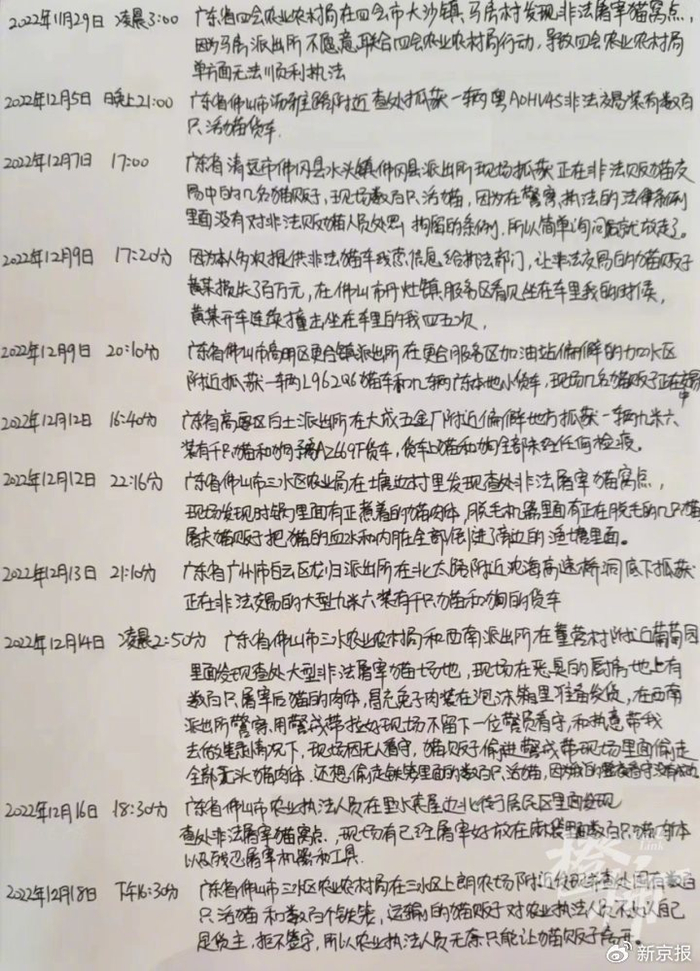 2022年11月29日 凌晨3:00 广东省四会农业农村局在四会市大沙镇马房村发现非法屠宰猫窝点,
因为马房派出所不愿意联合四会农业农村局行动,导致四会农业农村局
单方面无法顺利执法
2022年12月5日 晚上21:00 广东省佛山市 附近查处抓获一辆粤A0HV45非法交易装有数百
只活猫货车.
2022年12月7日 17:00 广东省清远市佛冈县水头镇佛冈县派出所现场抓获正在非法贩猫交
易中的几名猫贩子,现场数百只活猫,因为在警察执法的法律条例
里面没有对非法贩猫人员处罚 拘留的条例,所以简单询问后就放走了。
2022年12月9日 17:20分 因为本人多次提供非法猫车线索信息给执法部门,让非法交易的猫贩子
黄某损失了百万元,在佛山市丹灶镇服务区看见坐在车里我的时候,
黄某开车连续撞击坐在车里的我四五次,
2022年12月9日 20:10分 广东省佛山市高明区更合镇派出所在更合服务区加油站偏僻的加水区
附近抓获一辆L962Q6猫车和几辆广东本地小货车,现场几名猫贩子正在交易
中
2022年12月12日 16:40分 广东省高要区白土派出所在大成五金厂附近偏僻地方抓获一辆九米六
装有千只猫和狗 AZ669F货车,货车上猫和狗全部未经任何检疫。
2022年12月12日 22:16分 广东省佛山市三水区农业局在 边村里发现查处非法屠宰猫窝点,
现场发现时锅里面有正煮着的猫肉体,脱毛机器里面有正在脱毛的几只猫
屠夫猫贩子把猫的血水和内脏全部倒进了旁边的渔塘里面。
2022年12月13日 21:10分 广东省广州市白云区龙归派出所在北太路附近沈海高速桥洞底下抓获
正在非法交易的大型九米六装有千只猫和狗的货车
2022年12月14日 凌晨2:50分 广东省佛山市三水农业农村局和西南派出所在董营村附近葡萄园
里面发现查处大型非法屠宰猫场地,现场在恶臭的厨房地上有
数百只屠宰后猫的肉体,冒充兔子肉装在泡沫箱里准备发货,在西南
派出所警察用警戒带拉好现场不留下一位警员看守,和执意带我
去做笔录情况下,现场因无人看守,猫贩子偷进警戒带现场里面偷走
全部无头猫肉体.还想偷走铁笼里面的数百只活猫,因
2022年12月16日 18:30分 广东省佛山市农业执法人员在里水 边北街居民区里面发现
查处非法屠宰猫窝点,现场有已经屠宰好放在麻袋里面数百只猫肉体
以及 屠宰机器和工具.
2022年12月18日 下午16:30分 广东省佛山市三水区农业农村局在三水区上朗农场附近发现并查处
只活猫和数百个铁笼,运输的猫贩子对农业执法人员不 认自己
是货主,拒不签字,所以农业执法人员无奈只能让猫贩子离开。
橙柿
Link
@新京报